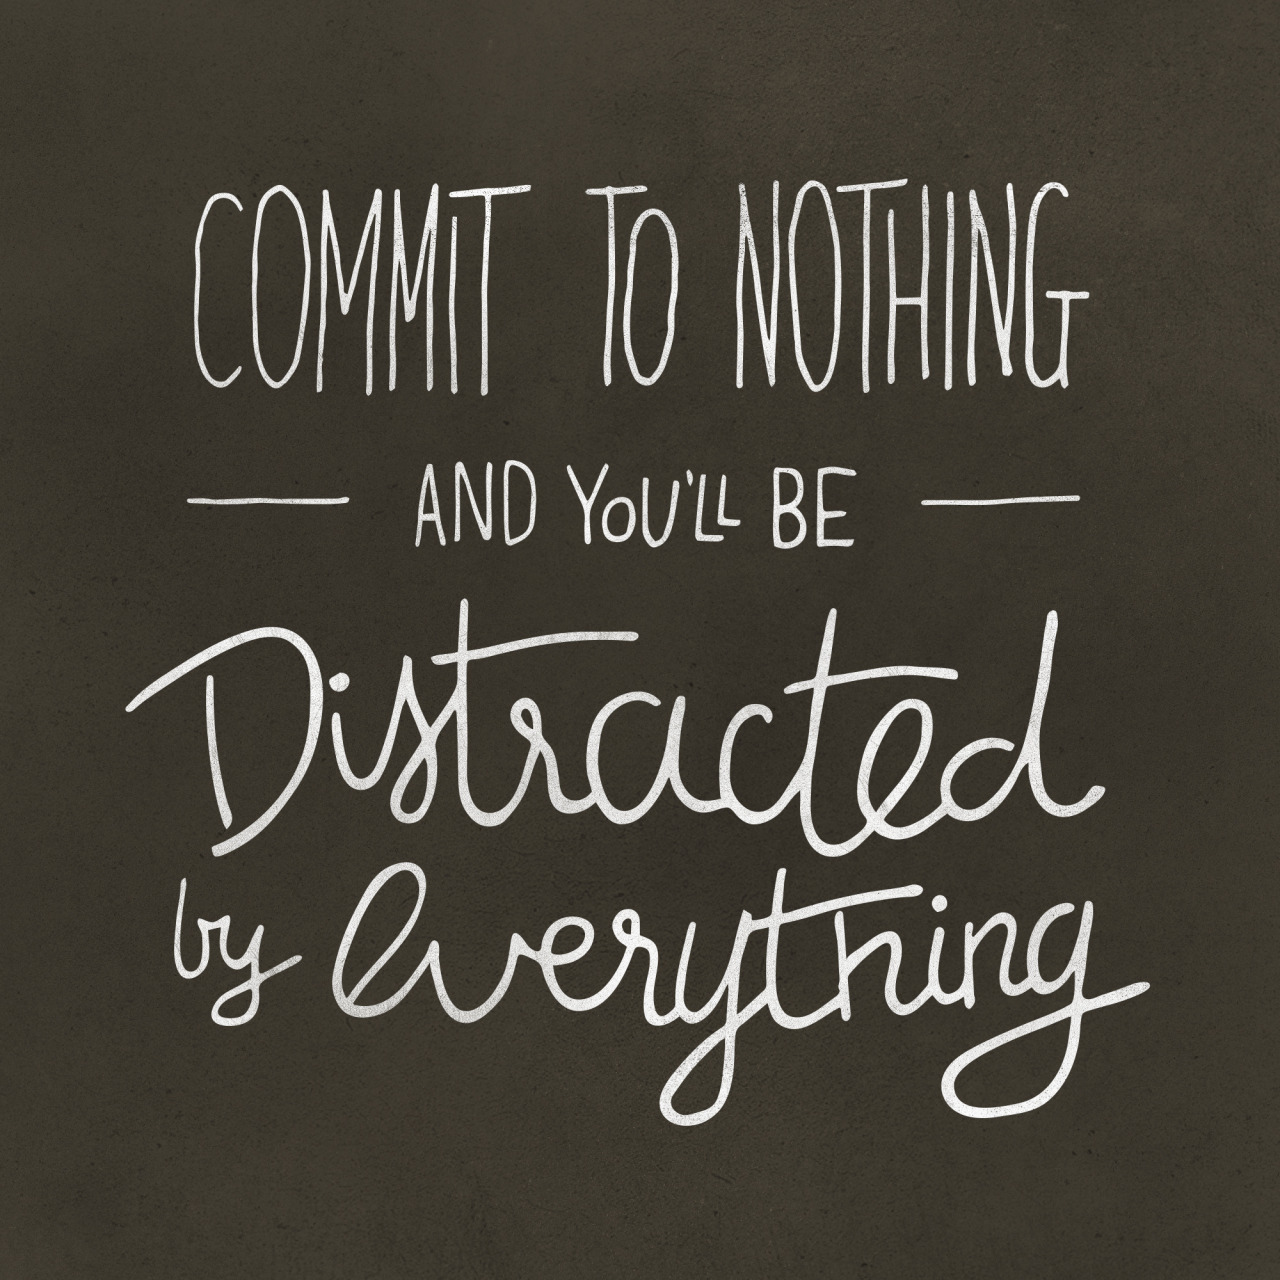 COMMIT TO NOTHING
AND YOU'LL BE
Distracted
by everything